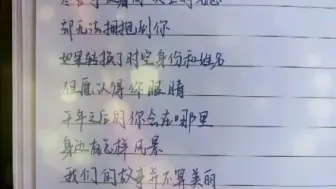 却无法拥抱到你
如果转换了时空身份和姓名
但愿认得你眼睛
千年之后的你会在哪里
身边有怎样风景
我们的故事并不算美丽